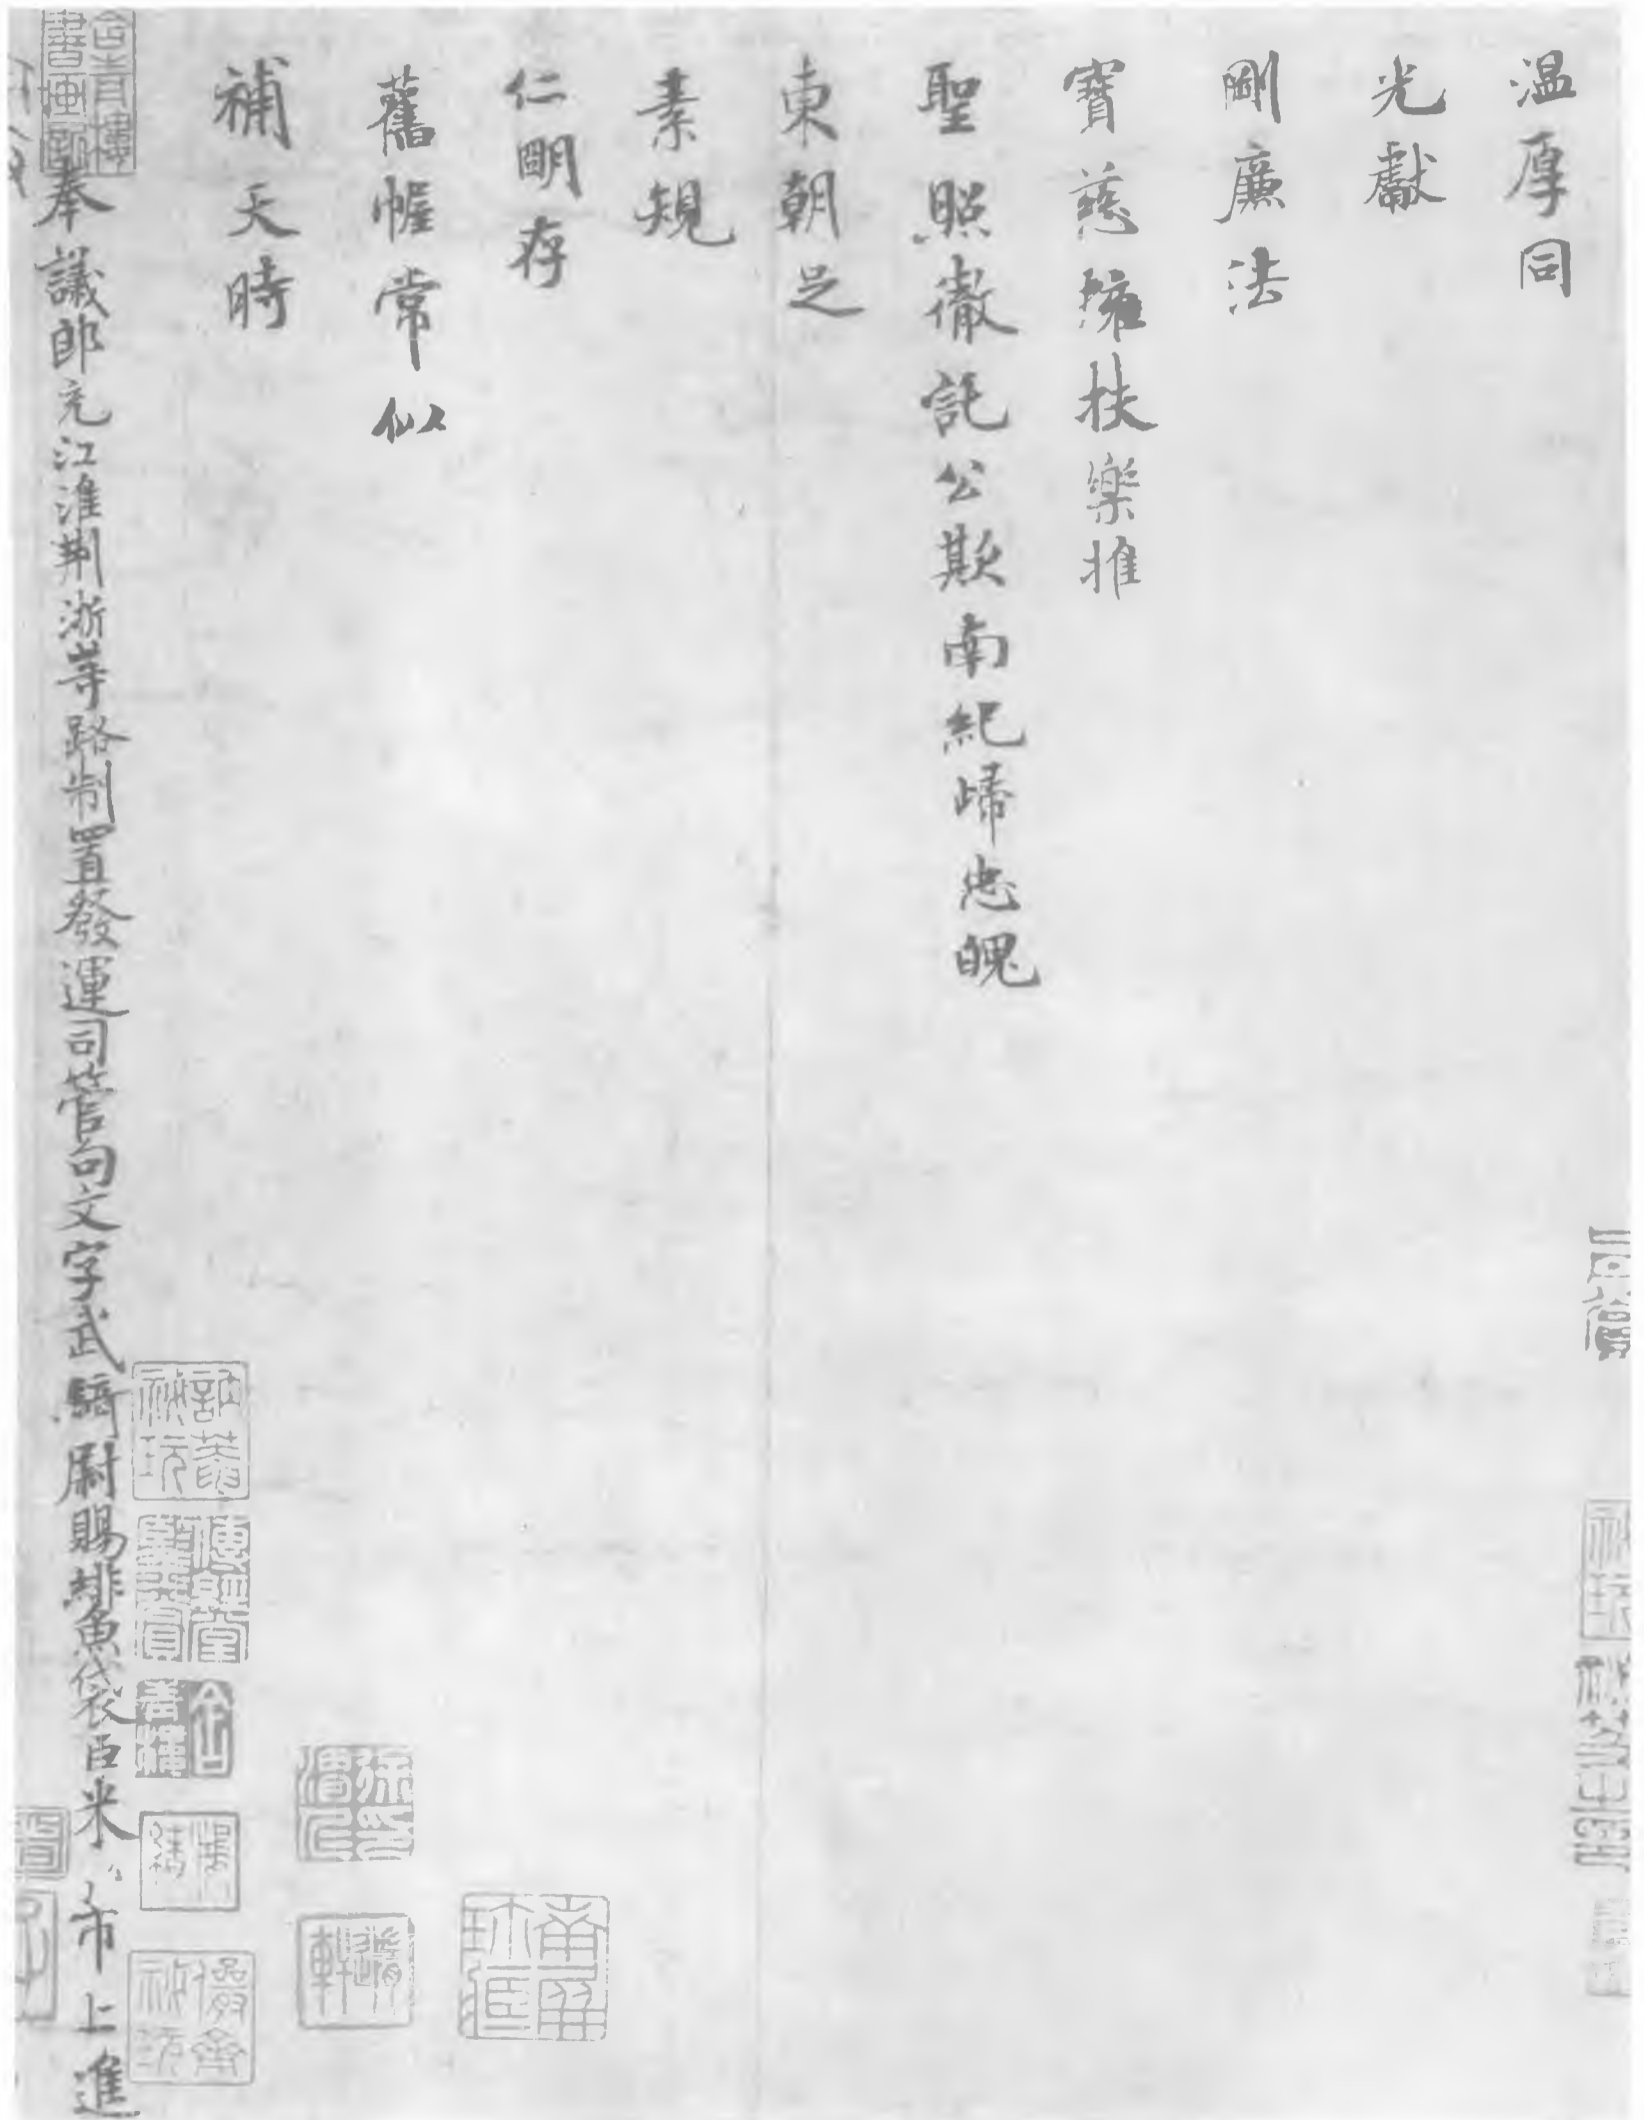 温厚同
光獻
剛廉法
寶慈擁扶樂推
聖照徹託公欺南紀啼忠魄
東朝足
素規
仁明存
舊幄常似
補天時
奉議郎充江淮荆浙等路制置發運司管句文字武騎尉賜緋魚袋臣米芾上進